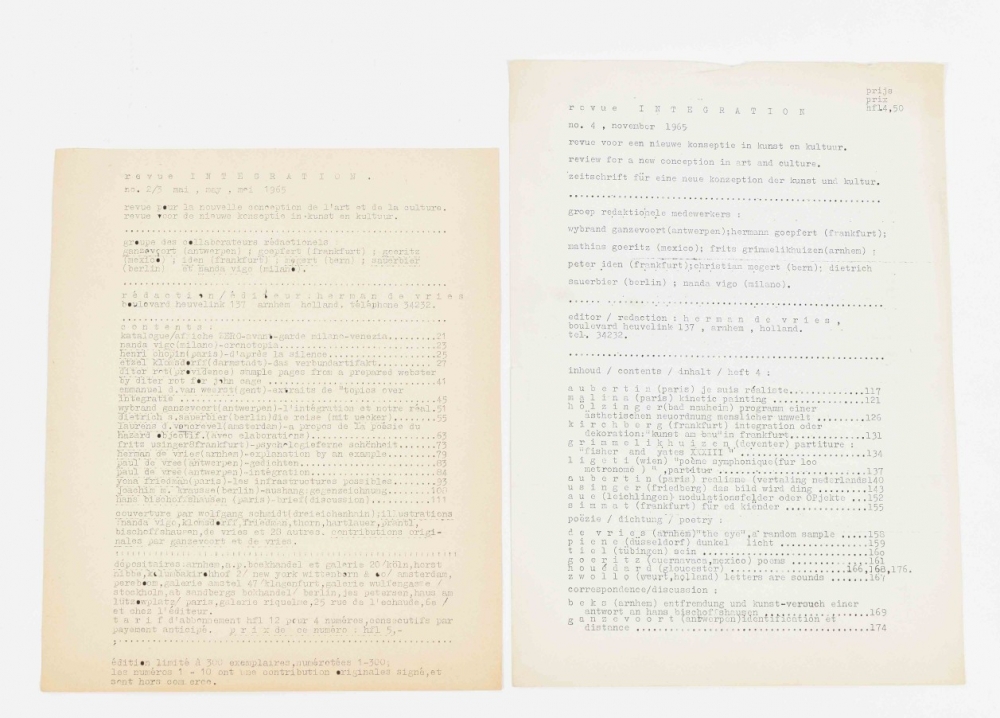 revue INTEGRATION.
no. 2/3 mai, may, mei 1965
revue pour la nouvelle conception de l'art et de la culture.
revue voor de nieuwe konseptie in kunst en kultuur.
groupe des collaborateurs rédactionels
ganzevoort (antwerpen) ; goepfert (frankfurt) ; goeritz
(mexico) ; iden (frankfurt) ; megert (bern) ; sauerbier
(berlin) et nanda vigo (milano).
rédaction/éditeur:herman de vries
boulevard heuvelink 137 arnhem holland. téléphone 34232.
contents:
katalogue/affiche ZERO-avant-garde milano-venezia........21
nanda vigo(milano)-cronotopia............23
henri chopin(paris)-d'après la silence............25
etsal klomsdorff(darmstadt)-das verbundartifakt.......27
diter rot(providence) sample pages from a prepared webster
by diter rot for john cage ............41
emmanuel d.van weerst(gent)-extraits de "topics over
integratie ............45
wybrand ganzevoort(antwerpen)-l'intégration et notre réal.51
dietrich a.sauerbier(berlin)die reise (mit pecker)......55
laurens d.vanerevel(amsterdam)-a propos de la poésie du
hasard objectif.(avec elaborations)............63
frits usinger(frankfurt)-psychologieferne schönheit......73
herman de vries(arnhem)-explanation by an example........79
paul de vree(antwerpen)-gedichten............83
paul de vree(antwerpen)-intégration............84
yona friedman(paris)-les infrastructures possibles......93
joachim w. krausse(berlin)-aushang:gegenzeichnung......100
hans bischofshausen (paris)-brief(discussion)............111
couverture par wolfgang schmidt(dreieichenhain);illustrations
:nanda vigo,klomsdorff,friedman,thorn,hartlauer,prantl,
bischoffshausen,de vries et 28 autres. contributions origi-
nales par ganzevoort et de vries.
dépositaires:arnhem,n.p.boekhandel et galerie 20/köln,horst
nibbe,kolumbakirchhof 2/ new york wittenborn & co/ amsterdam,
pereboom,galerie amstel 47/klagenfurt,galerie wulfengasse /
stockholm,ab sandbergs bokhandel/ berlin,jes petersen,haus am
lützowplatz/ paris,galerie riquelme,25 rue de l'echaudé,6e /
et chez l'éditeur.
tarif d'abonnement hfl 12 pour 4 numéros,consecutifs par
payement antisipé. prix de ce numéro : hfl 5,-
édition limité à 300 exemplaires,numérotées 1-300;
les numéros 1 - 10 ont une contribution originales signé,et
sont hors commerce.
prijs
prix
hfl4,50
revue INTEGRATION
no. 4 , november 1965
revue voor een nieuwe konseptie in kunst en kultuur.
review for a new conception in art and culture.
zeitschrift für eine neue konzeption der kunst und kultur.
groep redaktionele medewerkers :
wybrand ganzevoort(antwerpen);hermann goepfert (frankfurt);
mathias goeritz (mexico); frits grimmelikhuizen(arnhem) ;
peter iden (frankfurt);christian megert (bern); dietrich
sauerbier (berlin) ; nanda vigo (milano).
editor / redaction : herman de vries,
boulevard heuvelink 137 , arnhem , holland.
tel. 34232.
inhoud / contents / inhalt / heft 4 :
aubertin (paris) je suis réaliste............117
malina (paris) kinetic painting ............121
holzinger(bad nauheim) programm einer
ästhetischen neuordnung menschlicher umwelt ........126
kirchberg (frankfurt) integration oder
dekoration:"kunst am bau"in frankfurt............131
grimmelikhuizen (deventer) partiture :
"fisher and yates XXXIII " ............134
ligeti (wien) "poème symphonique(fur 100
metronome ) " ,partitur ............137
aubertin (paris) realisme (vertaling nederlands)140
usinger (friedberg) das bild wird ding ........143
aue (leichlingen) modulationsfelder oder OPjekte ...152
simmat (frankfurt) für ed kiender ............155
poëzie / dichtung / poetry :
de vries (arnhem)"the eye",a random sample .....158
piene (düsseldorf) dunkel licht ............159
tiel (tübingen) sein ............160
goeritz (cuernavaca,mexico) poems ............161
houedard (gloucester) ............166,168,176.
zwollo (weurt,holland) letters are sounds ......167
correspondence/discussion :
beks (arnhem) entfremdung und kunst-versuch einer
antwort an hans bischofshausen ............169
ganzevoort (antwerpen)identification et
distance ............174